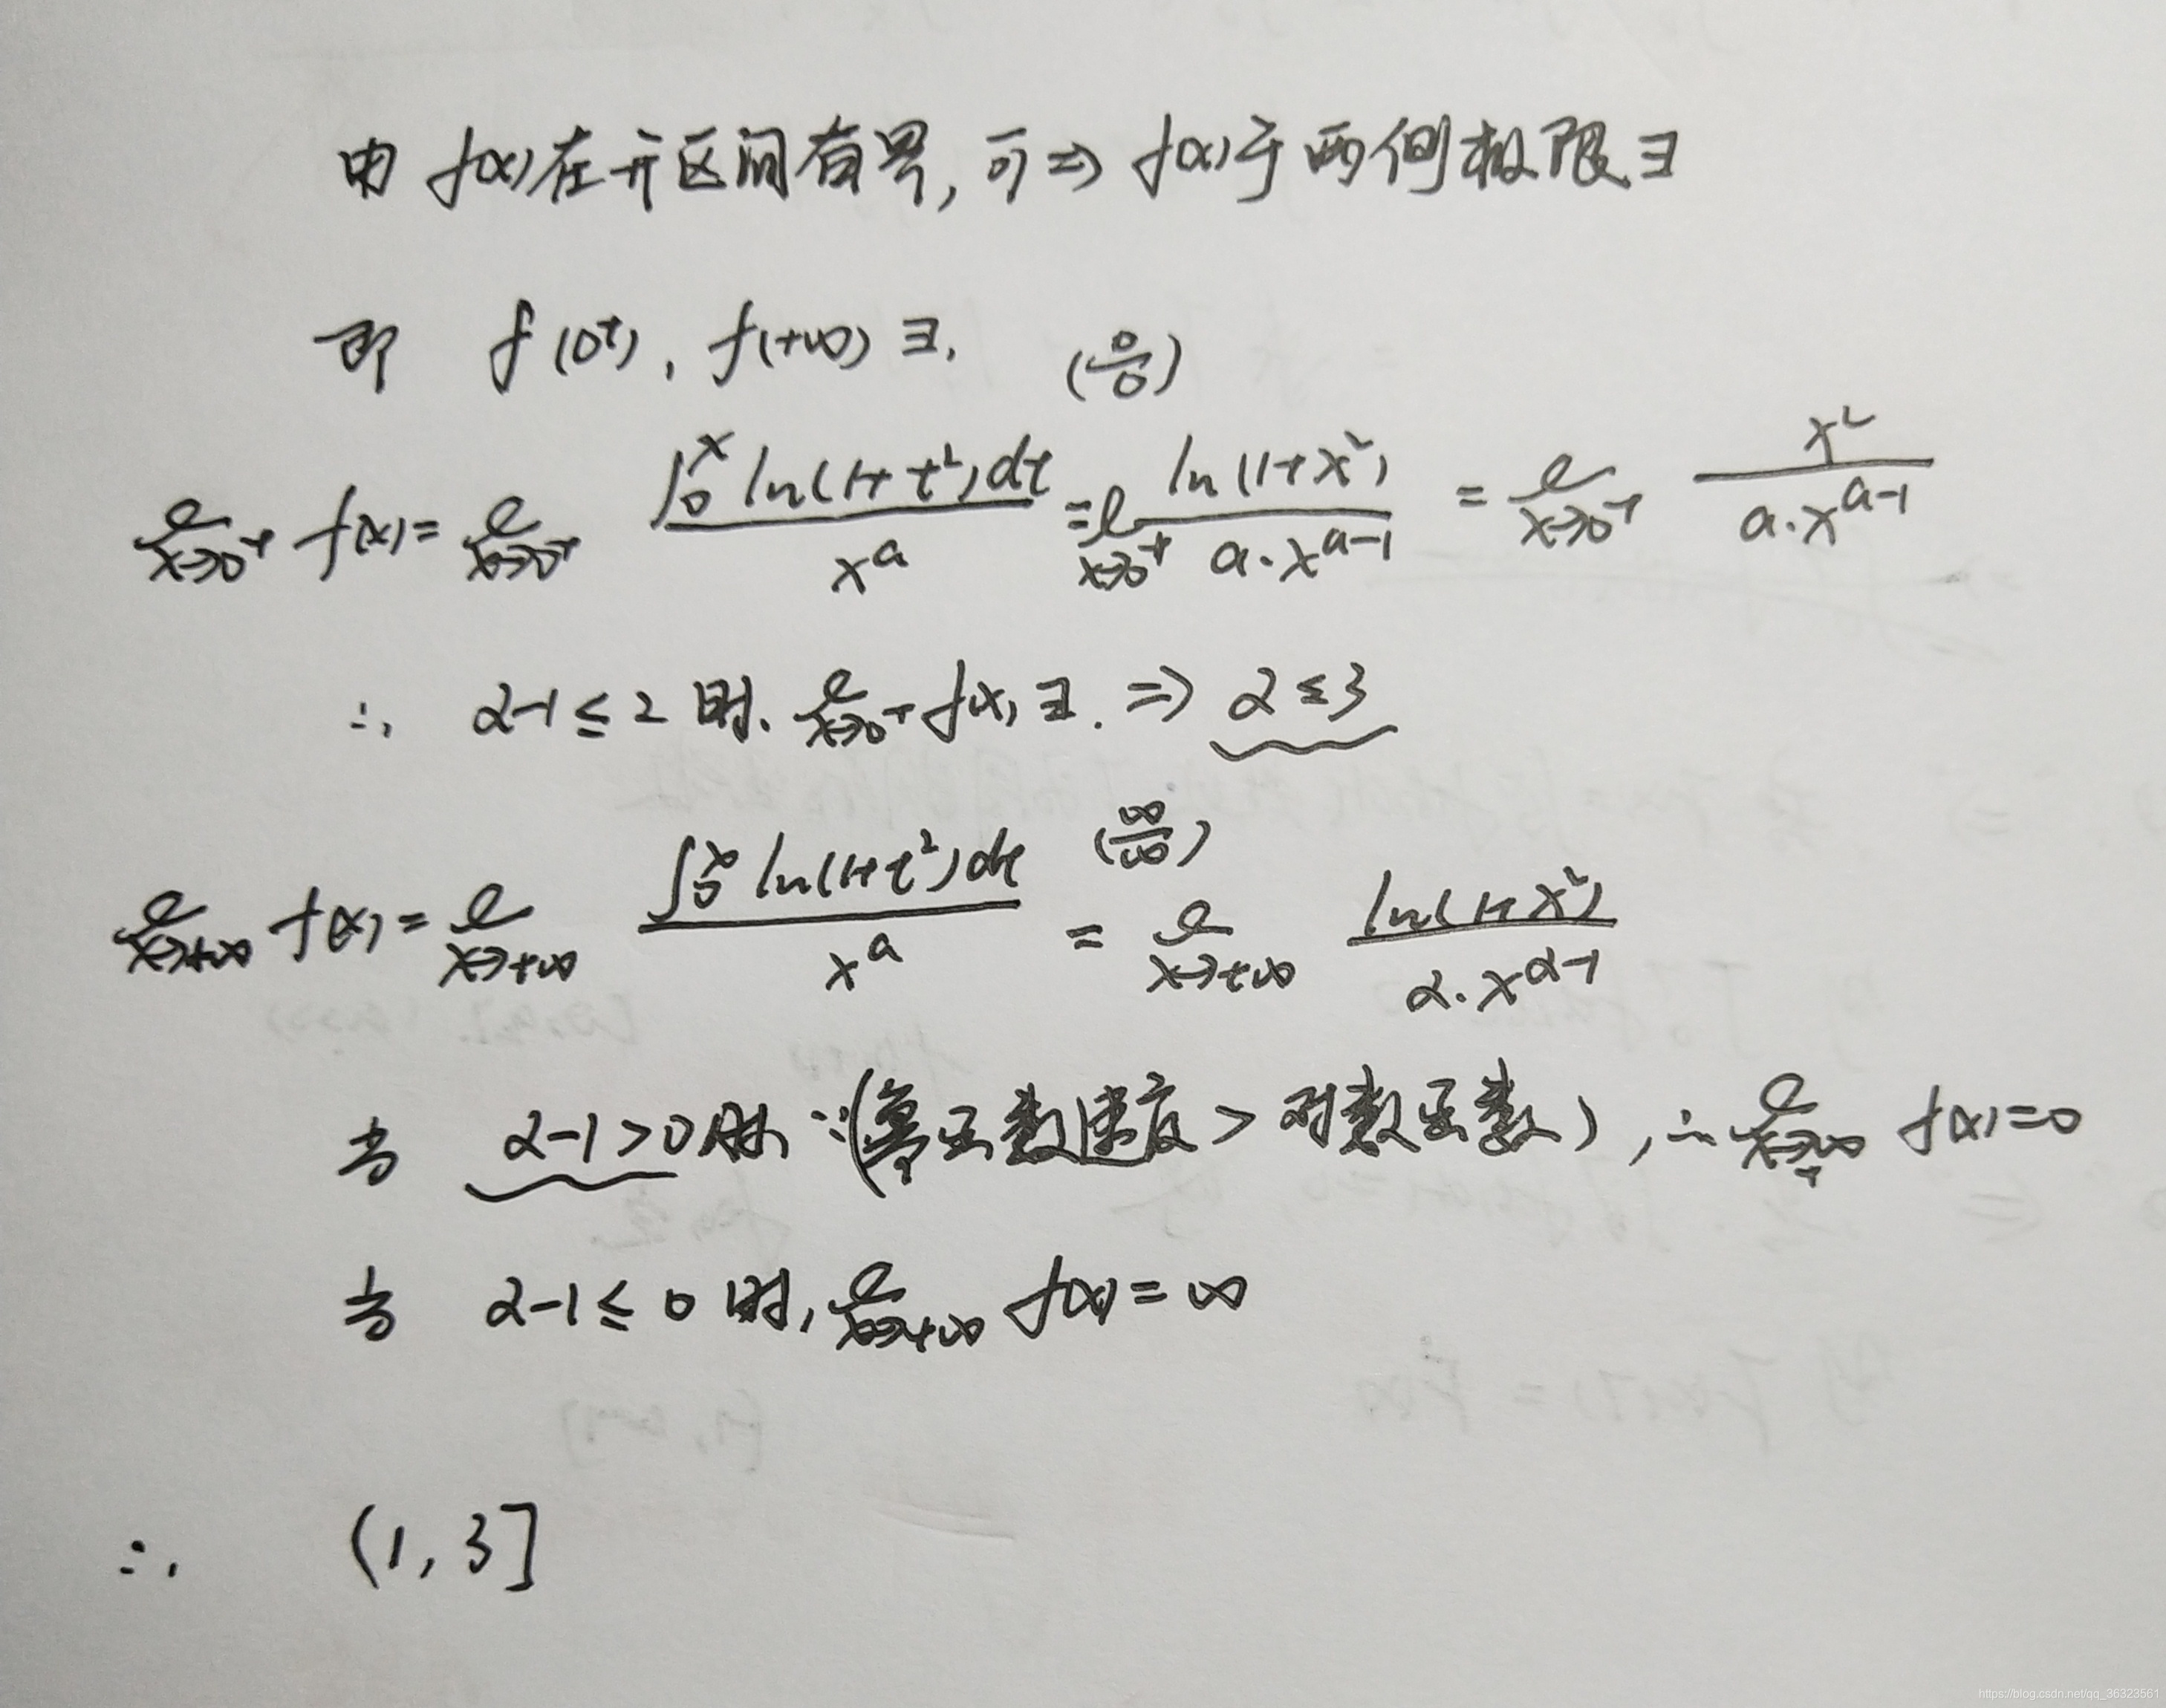 由 f(x)在开区间有界,可⇒ f(x)于两侧极限∃
即 f(0⁺), f(+∞) ∃. (0/0)
ℓ_{x→0⁺} f(x) = ℓ_{x→0⁺} ∫₀ˣ ln(1+t²)dt / xᵃ = ℓ_{x→0⁺} ln(1+x²) / a·x^{a-1} = ℓ_{x→0⁺} x² / a·x^{a-1}
∴ α-1≤2 时. ℓ_{x→0⁺} f(x) ∃. ⇒ α≤3
ℓ_{x→+∞} f(x) = ℓ_{x→+∞} ∫₀ˣ ln(1+t²)dt / xᵃ (∞/∞) = ℓ_{x→+∞} ln(1+x²) / α·x^{α-1}
当 α-1>0时 ∵(幂函数速度 > 对数函数), ∴ ℓ_{x→+∞} f(x)=0
当 α-1≤0 时, ℓ_{x→+∞} f(x)=∞
∴ (1,3]
https://blog.csdn.net/qq_36323561